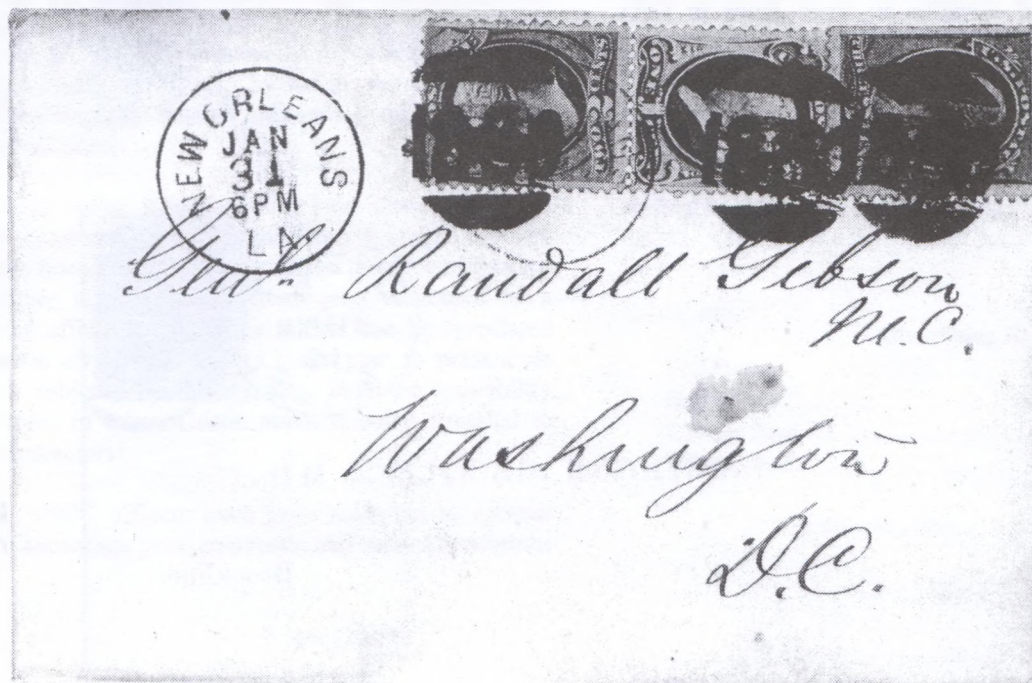 NEW ORLEANS
JAN
31
6PM
LA
Genl. Randall Gibson
M.C.
Washington
D.C.